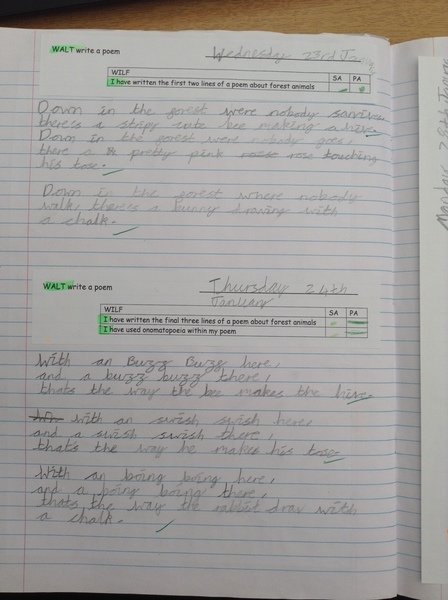 WALT write a poem
Wednesday 23rd
WILF SA PA
I have written the first two lines of a poem about forest animals
Down in the forest were nobody
there's a stripy cute bee making a hive.
Down in the forest were nobody goes,
there a pretty pink rose touching
his tose.
Down in the forest where nobody
walk, there's a bunny drawing with
a chalk.
WALT write a poem
Thursday 24th
January
WILF SA PA
I have written the final three lines of a poem about forest animals
I have used onomatopoeia within my poem
With an Buzz Buzz here,
and a buzz buzz there,
thats the way the bee makes the hive.
with an swish swish here
and a swish swish there,
thats the way he makes his tose
With an boing boing here,
and a boing boing there,
thats the way the rabbit drav with
a chalk.